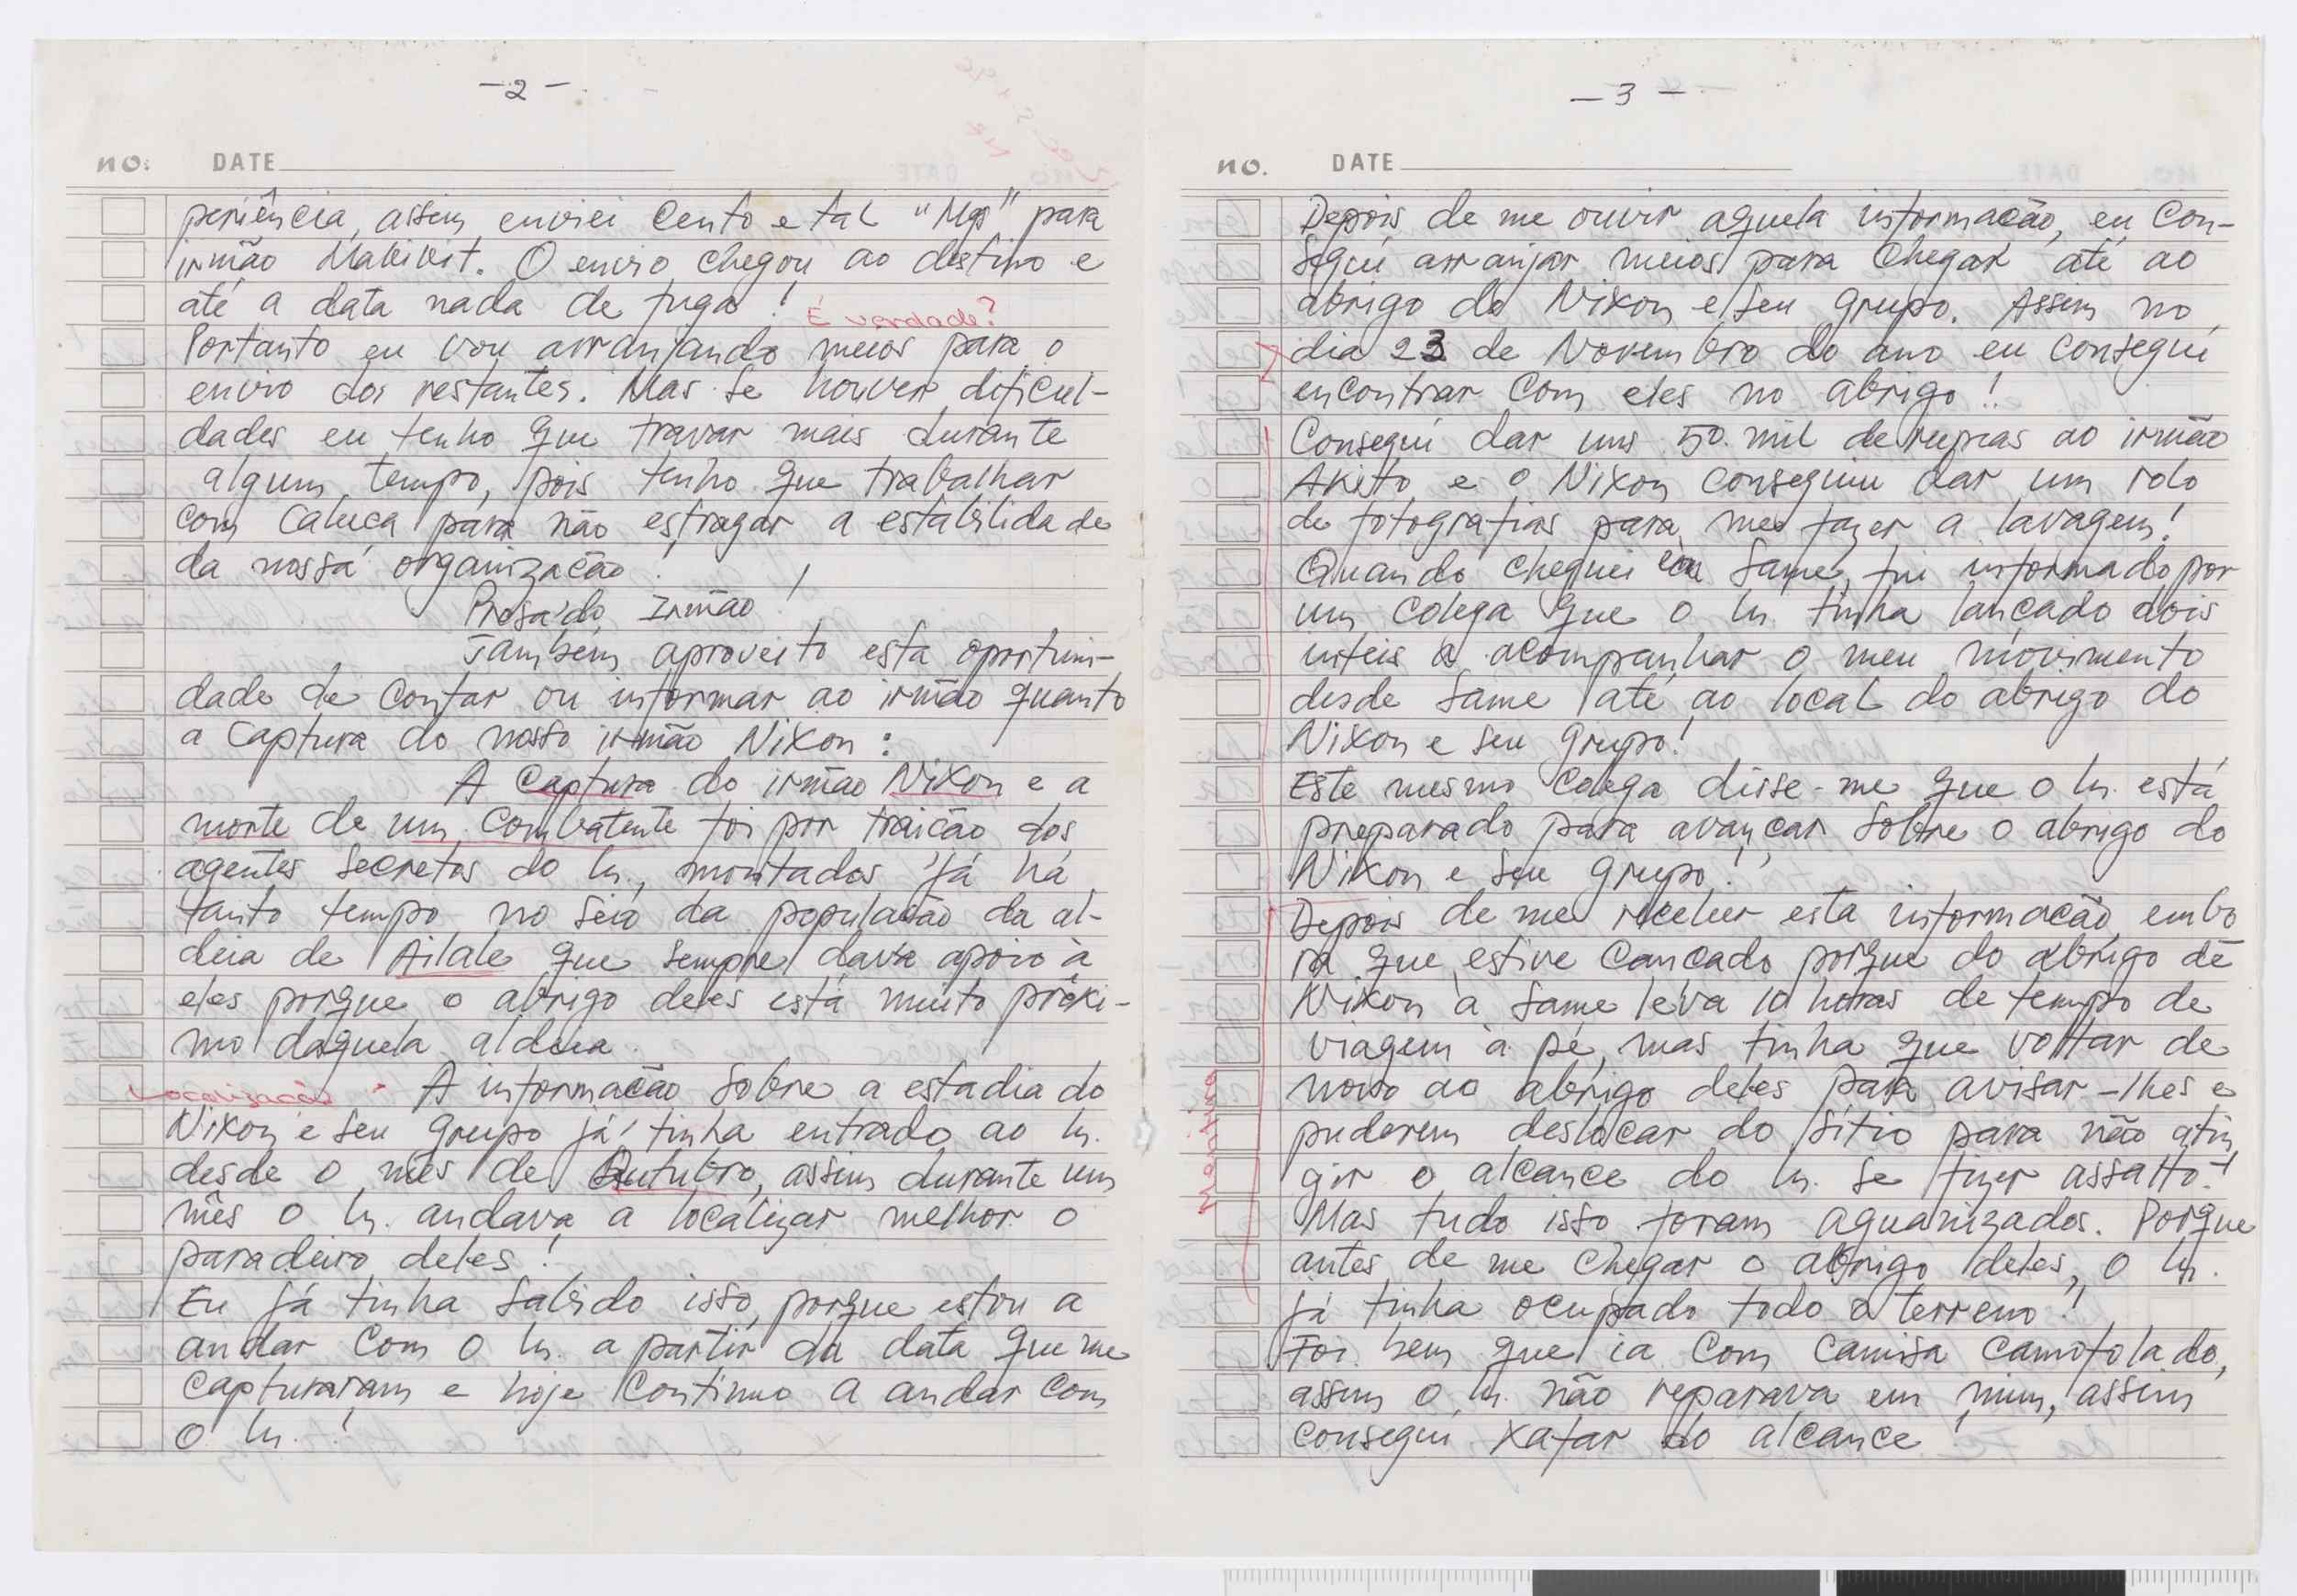 -2-
no. DATE
periência, assim enviei cento e tal "Mgs" para
irmão Mabikit. O envio chegou ao destino e
até a data nada de fuga!
É verdade?
Portanto eu vou arranjando meios para o
envio dos restantes. Mas se houver dificul-
dades eu tenho que travar mais durante
algum tempo, pois tenho que trabalhar
com caluca para não estragar a estabilidade
da nossa organização!
Presado Irmão!
Também aproveito esta oportuni-
dade de contar ou informar ao irmão quanto
a captura do nosso irmão Nixon:
A captura do irmão Nixon e a
morte de um combatente foi por traicão dos
agentes secretos do In., montados já há
tanto tempo no seio da populacão da al-
deia de Ailale que sempre dava apoio à
eles porque o abrigo deles está muito próxi-
mo daquela aldeia.
Localização
A informacão sobre a estadia do
Nixon e seu grupo já tinha entrado ao In.
desde o mês de Outubro, assim durante um
mês o In. andava a localizar melhor o
paradeiro deles!
Eu já tinha sabido isso, porque estou a
andar com o In. a partir da data que me
capturaram e hoje continuo a andar com
o In.!
-3-
no. DATE
Depois de me ouvir aquela informacão, eu con-
segui arranjar meios para chegar até ao
abrigo do Nixon e seu grupo. Assim no
dia 23 de Novembro do ano eu consegui
encontrar com eles no abrigo!!
Consegui dar uns 50 mil de rupias ao irmão
Akito e o Nixon conseguiu dar um rolo
de fotografias para me fazer a lavagem!
Quando cheguei em Same, fui informado por
um colega que o In. tinha lançado dois
inteis a acompanhar o meu movimento
desde Same até ao local do abrigo do
Nixon e seu grupo!
Este mesmo colega disse-me que o In. está
preparado para avançar sobre o abrigo do
Nixon e seu grupo!
Depois de me receber esta informacão, embo
ra que estive cancado porque do abrigo de
Nixon à Same leva 10 horas de tempo de
viagem à pé, mas tinha que voltar de
novo ao abrigo deles para avisar-lhes e
puderem deslocar do sítio para não atin
gir o alcance do In. se fizer assalto!
mentira
Mas tudo isso foram aguanizados. Porque
antes de me chegar o abrigo deles, o In.
já tinha ocupado todo o terreno!
Foi bem que ia com camisa camofolado,
assim o In. não reparava em mim, assim
consegui xafar do alcance!